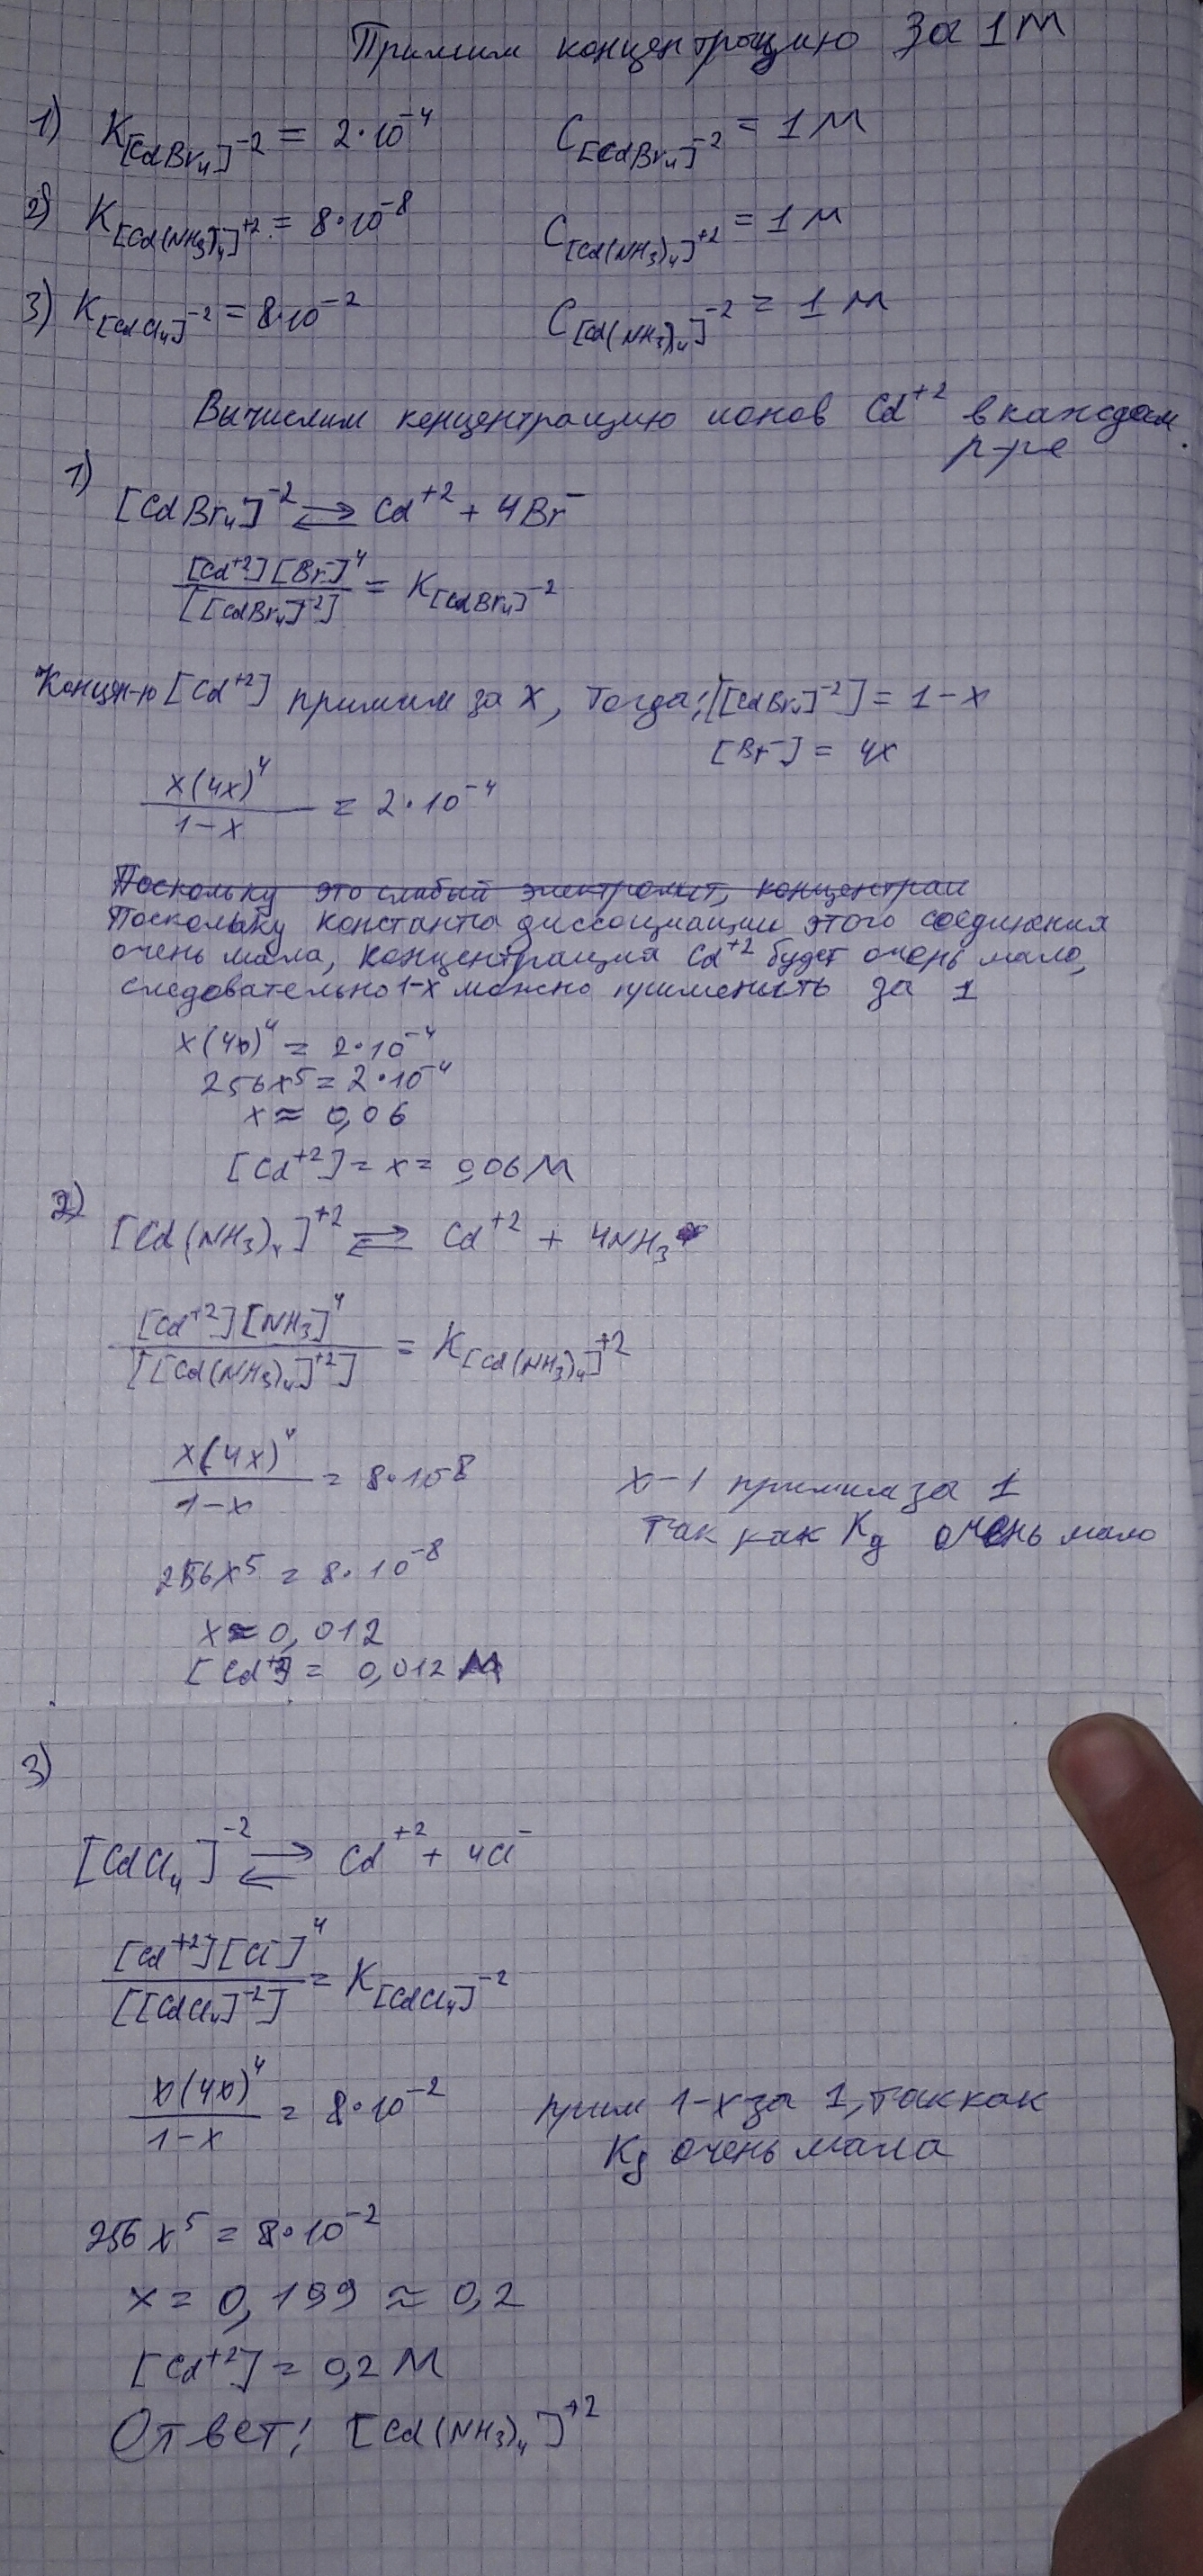 Примим концентрацию за 1 М
1) K[CdBr₄]⁻² = 2·10⁻⁴ C[CdBr₄]⁻² = 1 М
2) K[Cd(NH₃)₄]⁺² = 8·10⁻⁸ C[Cd(NH₃)₄]⁺² = 1 М
3) K[CdCl₄]⁻² = 8·10⁻² C[Cd(NH₃)₄]⁻² = 1 М
Вычислим концентрацию ионов Cd⁺² в каждом
р-ре
1)
[CdBr₄]⁻² ⇄ Cd⁺² + 4Br⁻
[Cd⁺²][Br⁻]⁴ / [[CdBr₄]⁻²] = K[CdBr₄]⁻²
Концен-ю [Cd⁺²] примим за x, Тогда: [[CdBr₄]⁻²] = 1-x
[Br⁻] = 4x
x(4x)⁴ / 1-x = 2·10⁻⁴
Поскольку это слабый электролит, концентрац
Поскольку константа диссоциации этого соединения
очень мала, концентрация Cd⁺² будет очень мало,
следовательно 1-x можно применить за 1
x(4x)⁴ = 2·10⁻⁴
256x⁵ = 2·10⁻⁴
x ≈ 0,06
[Cd⁺²] = x = 0,06 М
2)
[Cd(NH₃)₄]⁺² ⇄ Cd⁺² + 4NH₃
[Cd⁺²][NH₃]⁴ / [[Cd(NH₃)₄]⁺²] = K[Cd(NH₃)₄]⁺²
x(4x)⁴ / 1-x = 8·10⁻⁸ x-1 примим за 1
так как Kд очень мало
256x⁵ = 8·10⁻⁸
x ≈ 0,012
[Cd⁺²] = 0,012 М
3)
[CdCl₄]⁻² ⇄ Cd⁺² + 4Cl⁻
[Cd⁺²][Cl⁻]⁴ / [[CdCl₄]⁻²] = K[CdCl₄]⁻²
x(4x)⁴ / 1-x = 8·10⁻² прим 1-x за 1, так как
Kд очень мала
256x⁵ = 8·10⁻²
x = 0,199 ≈ 0,2
[Cd⁺²] = 0,2 М
Ответ: [Cd(NH₃)₄]⁺²